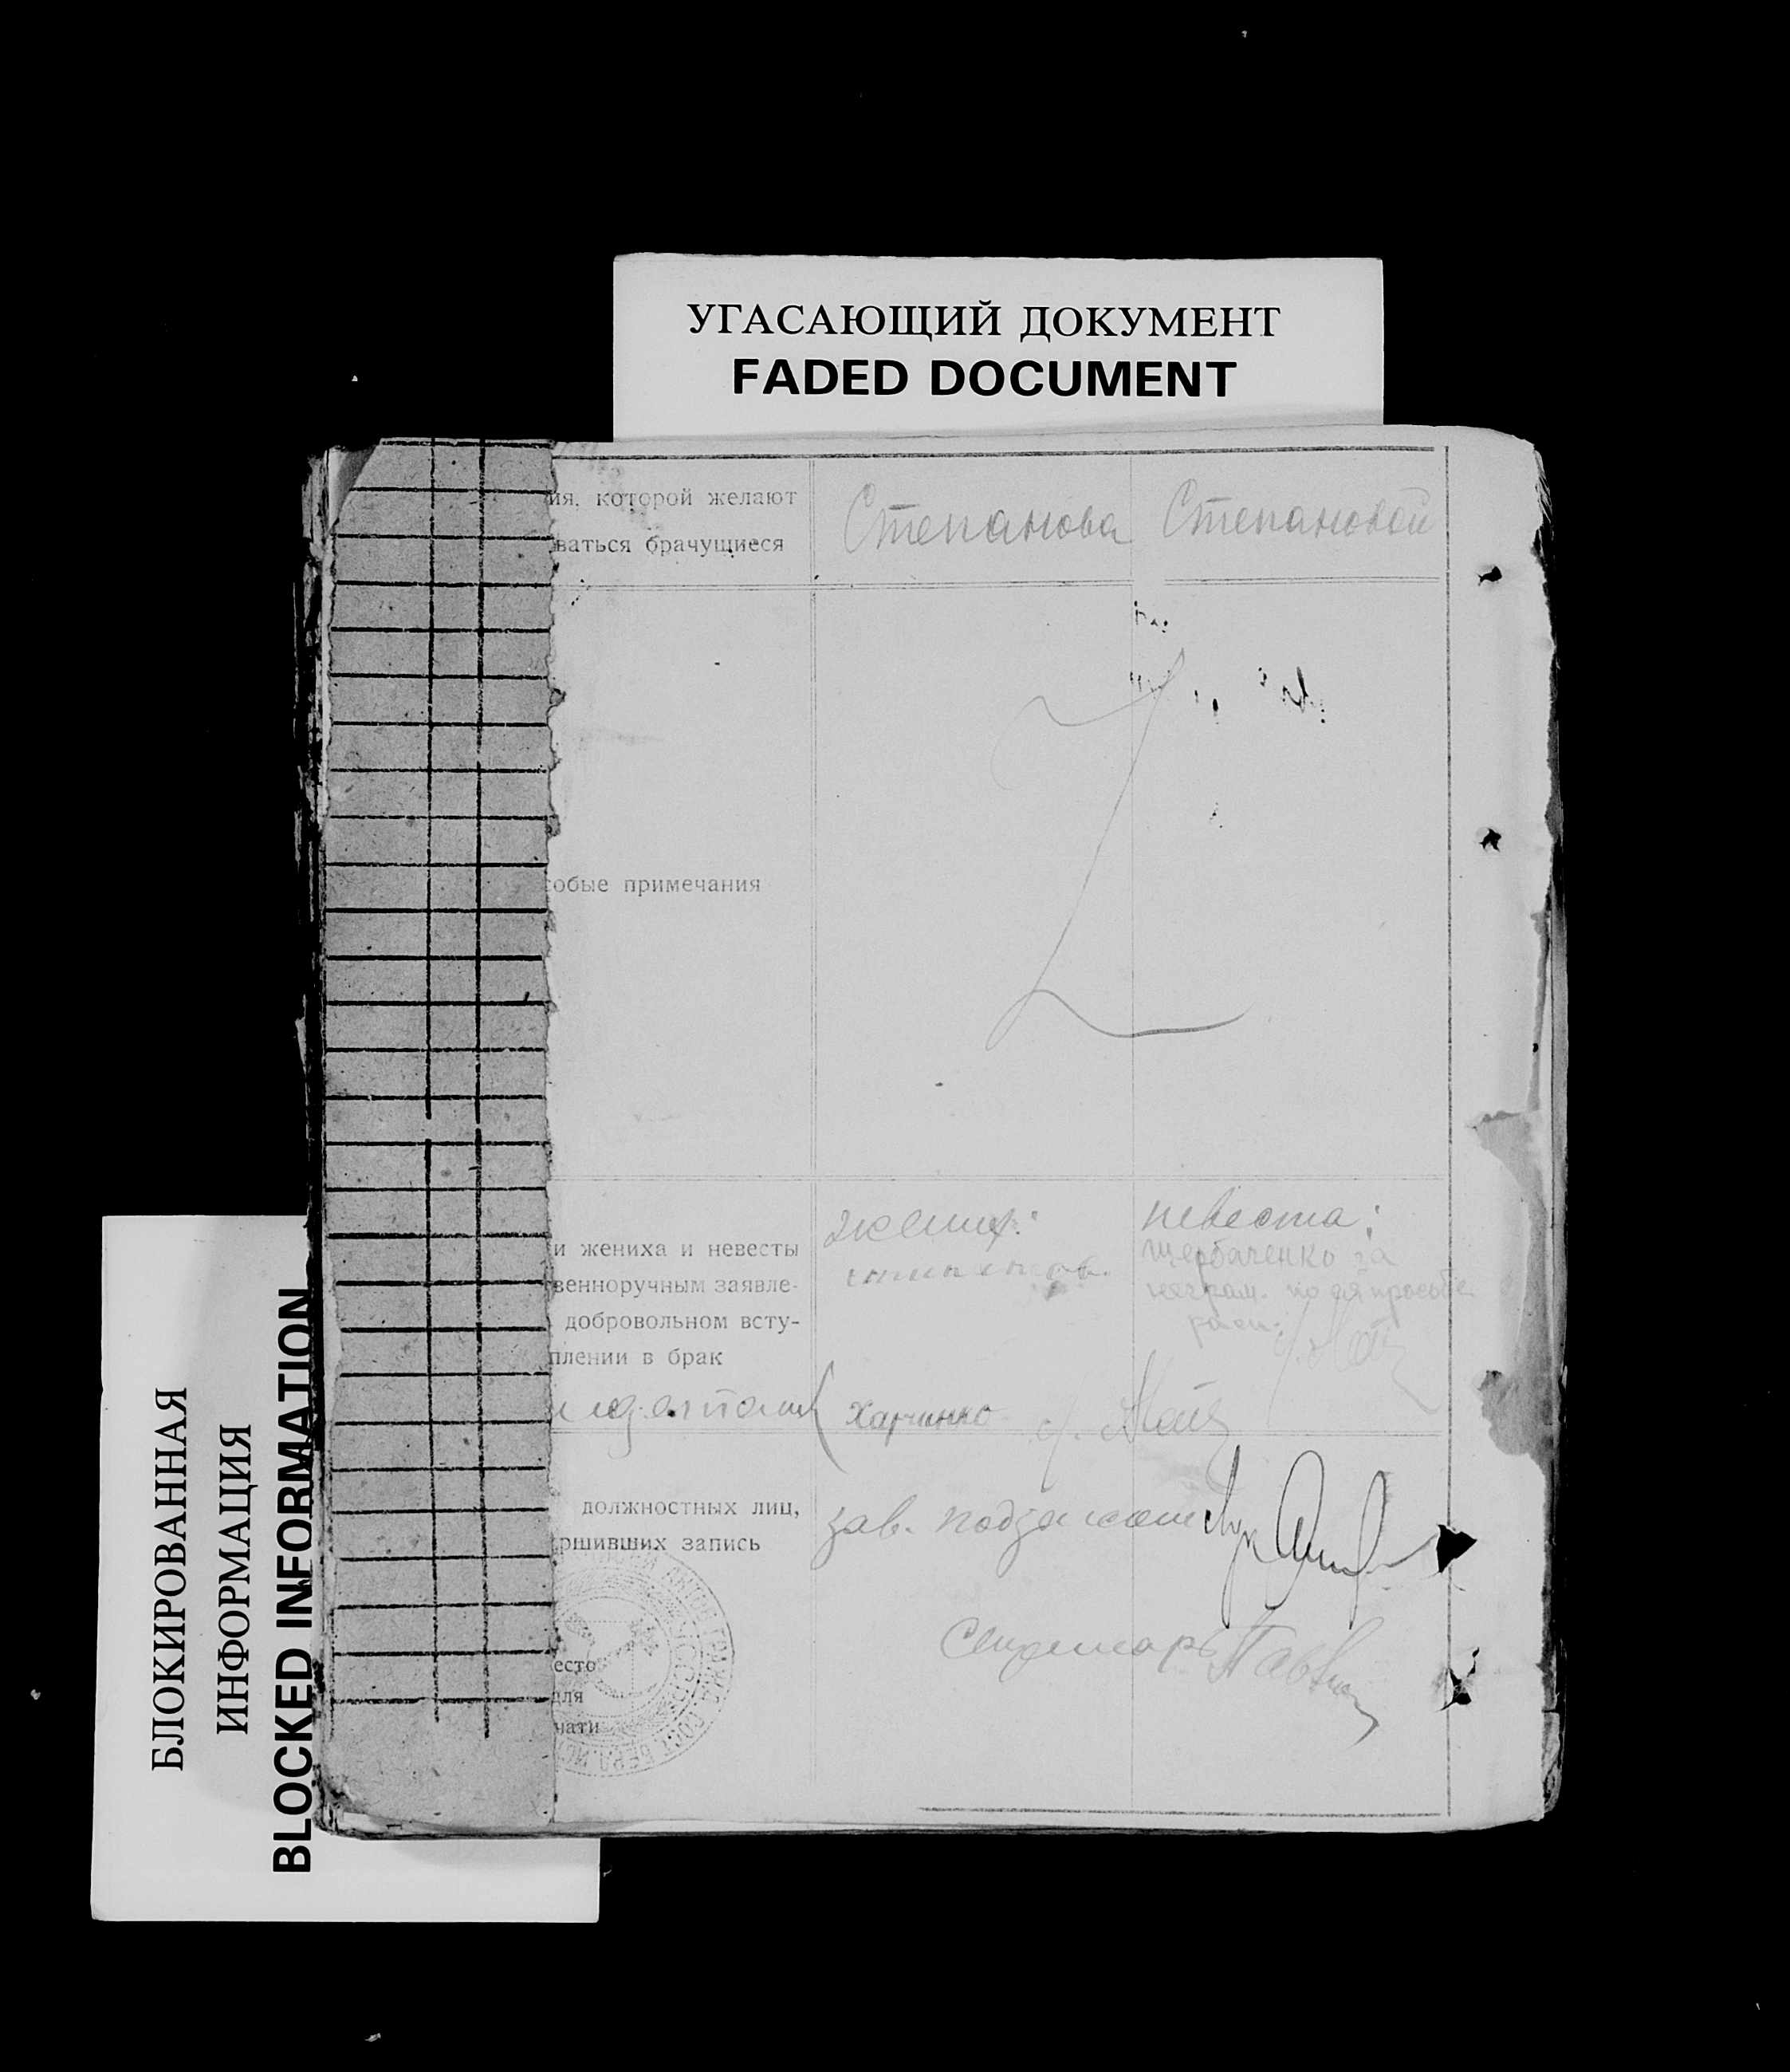 УГАСАЮЩИЙ ДОКУМЕНТ
FADED DOCUMENT
ия, которой желают
ваться брачущиеся
Степанова
Степановой
собые примечания
и жениха и невесты
твенноручным заявле-
добровольном всту-
плении в брак
жених:
невеста:
Щербаченко за
неграм. по ея просьбе
расп.
Харченко
должностных лиц,
ршивших запись
зав. подзагсом
Секретарь
есто
для
чати
БЛОКИРОВАННАЯ
ИНФОРМАЦИЯ
BLOCKED INFORMATION